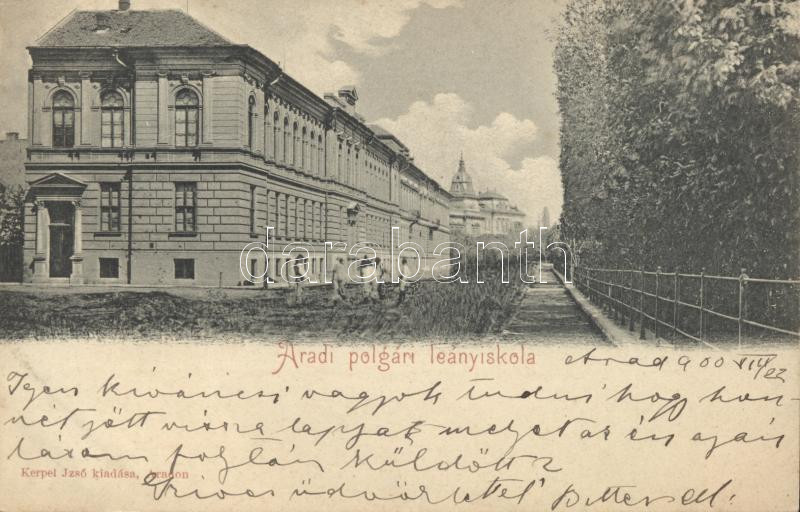 darabanth
Aradi polgári leányiskola Arad 900 VIII/22
Igen kiváncsi vagyok tudni hogy hon-
nét jött vissza lapja melyet az én aján
lásom folytán küldött
Kerpel Jzsó kiadása, Aradon
Szives üdvözlettel